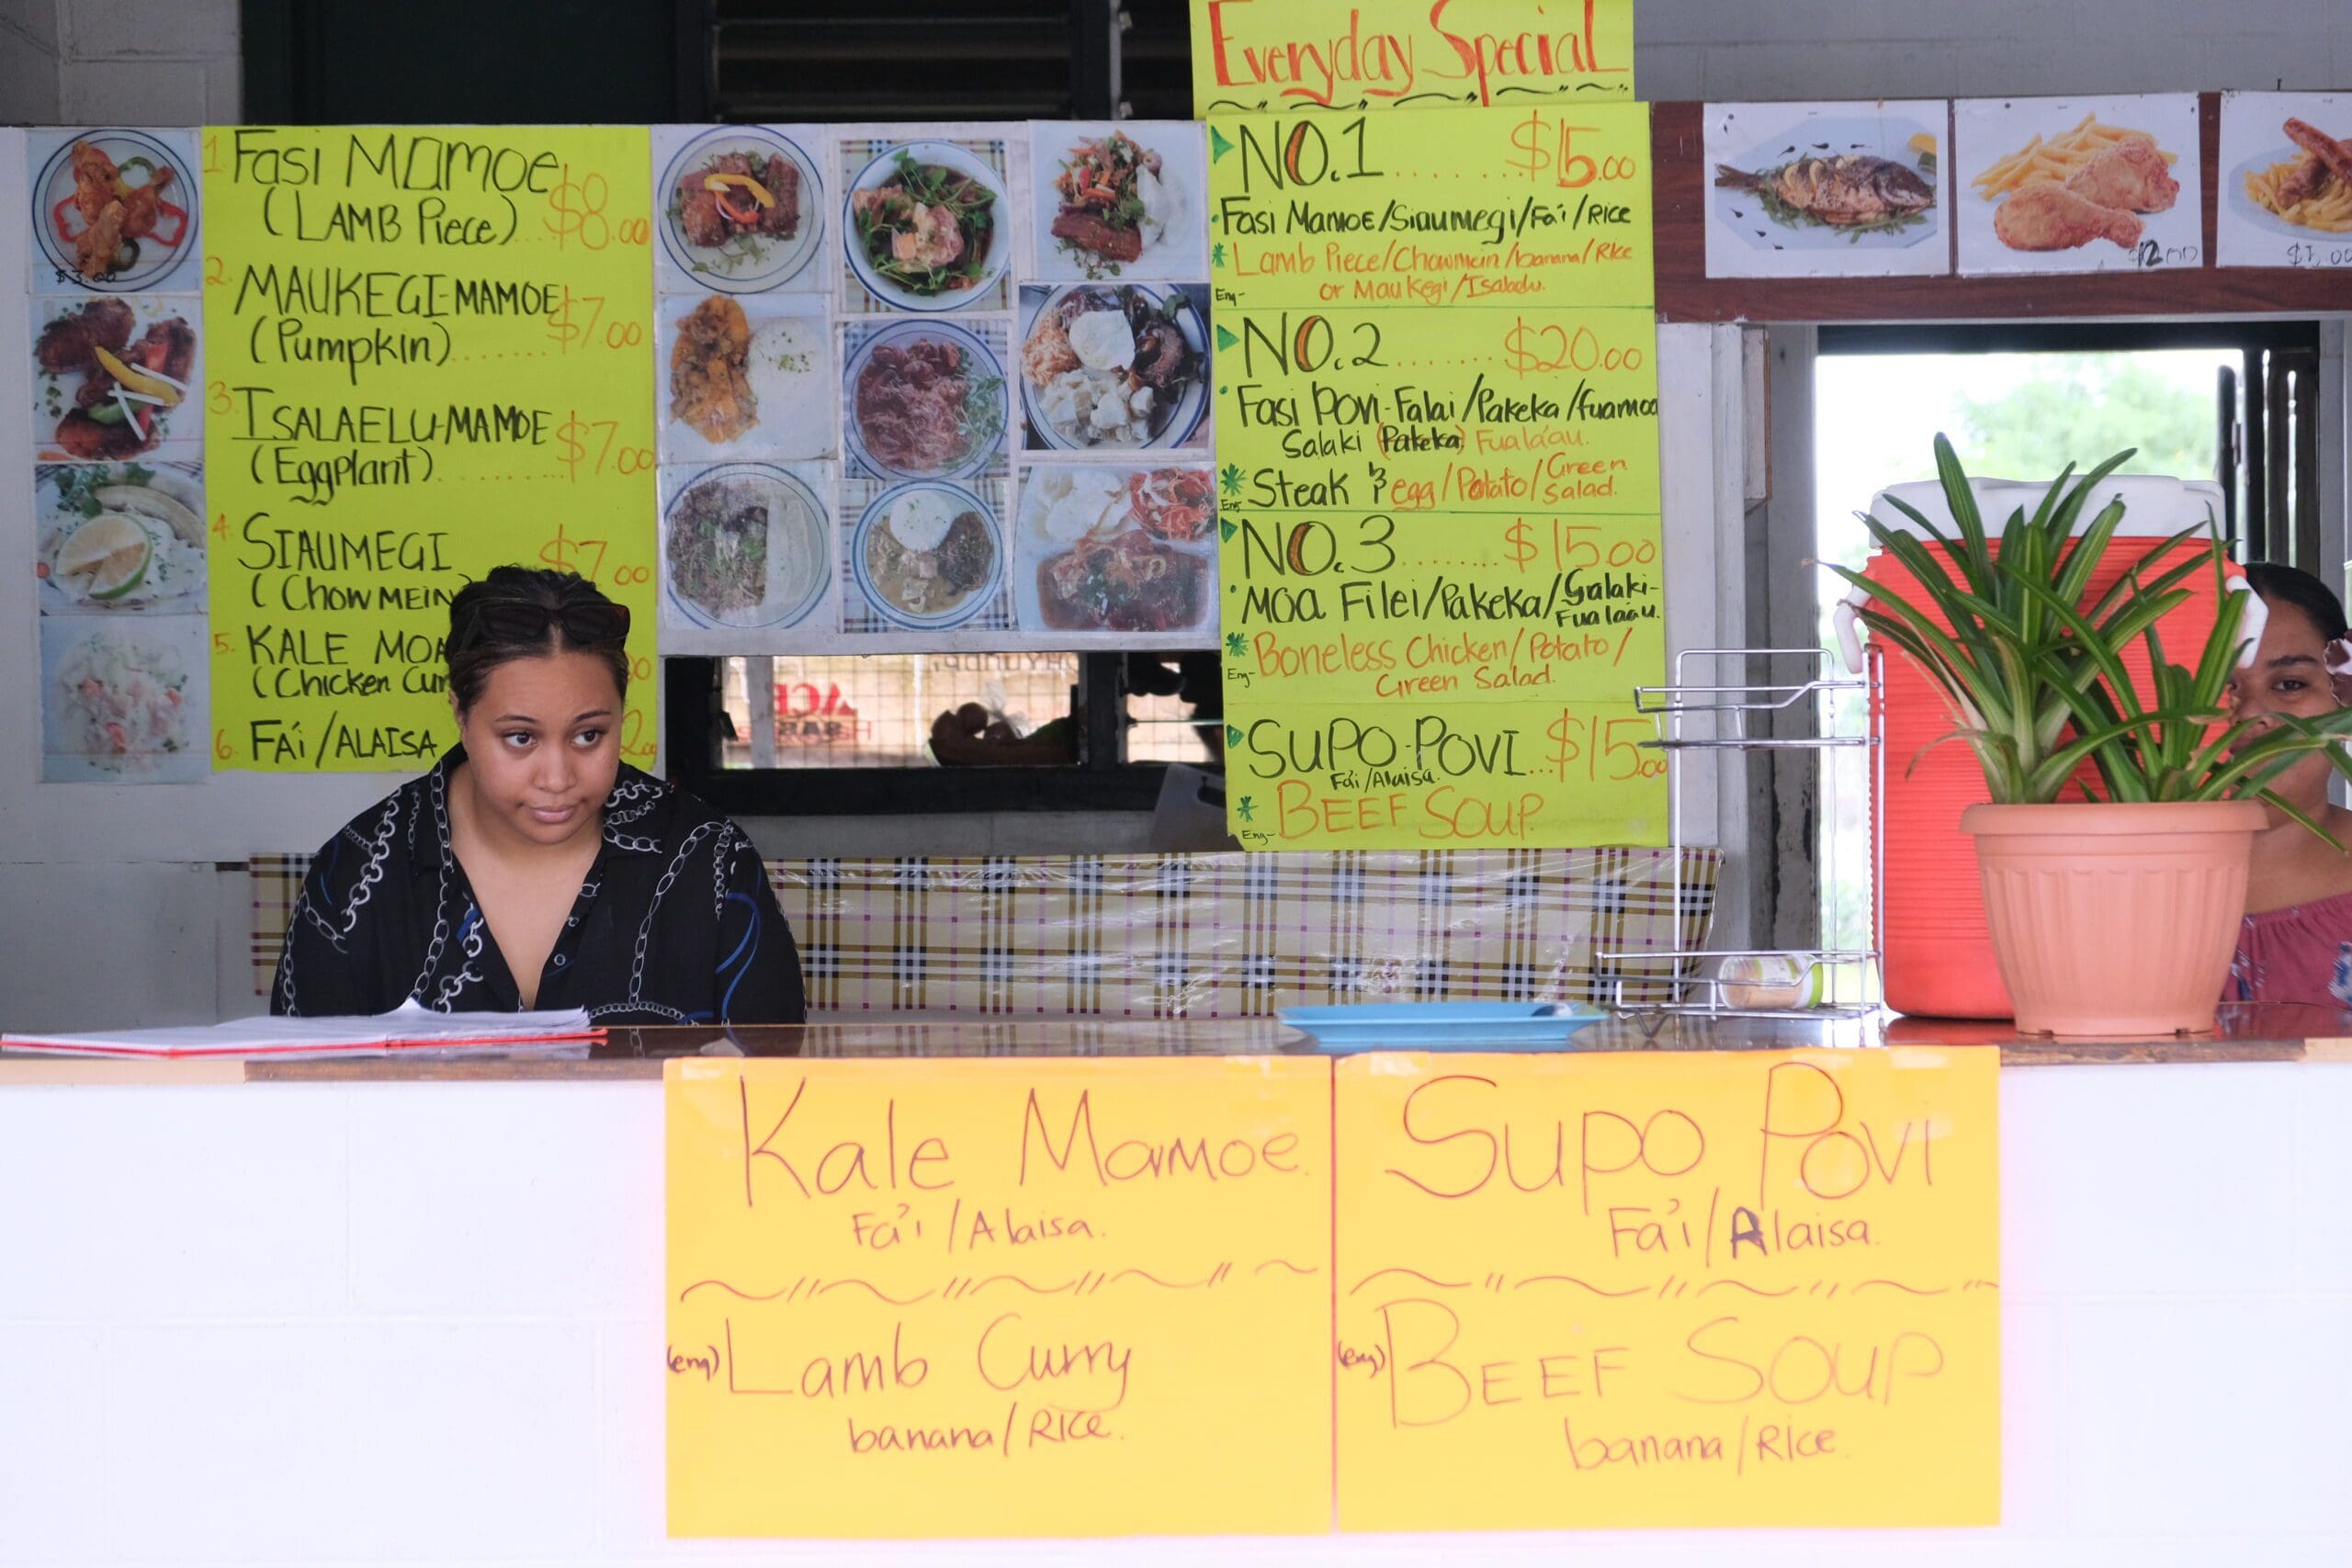 Everyday Special
1. Fasi Mamoe
(LAMB Piece)....$8.00
2. MAUKEGI-MAMOE
(Pumpkin).......$7.00
3. ISALAELU-MAMOE
(Eggplant).........$7.00
4. SIAUMEGI $7.00
(CHOWMEIN
5. KALE MOA
(Chicken Cur
6. FA'i/ALAISA
$3.00
NO.1.......$15.00
Fasi Mamoe/Siaumegi/Fa'i/Rice
Lamb Piece/Chowmein/banana/Rice
Eng- or Maukegi/Isalaelu.
NO.2.......$20.00
Fasi Povi-Falai/Pakeka/fuamoa
Salaki (Pakeka) Fuala'au.
Eng- Steak & egg/Potato/Green Salad.
NO.3........$15.00
Moa Filei/Pakeka/Salaki-
Fuala'au.
Eng- Boneless Chicken/Potato/
Green Salad.
SUPO-POVI...$15.00
Fa'i/Alaisa.
Eng- BEEF SOUP.
Kale Mamoe.
Fa'i/Alaisa.
(eng) Lamb Curry
banana/Rice.
Supo Povi
Fa'i/Alaisa.
(eng) BEEF SOUP
banana/Rice.